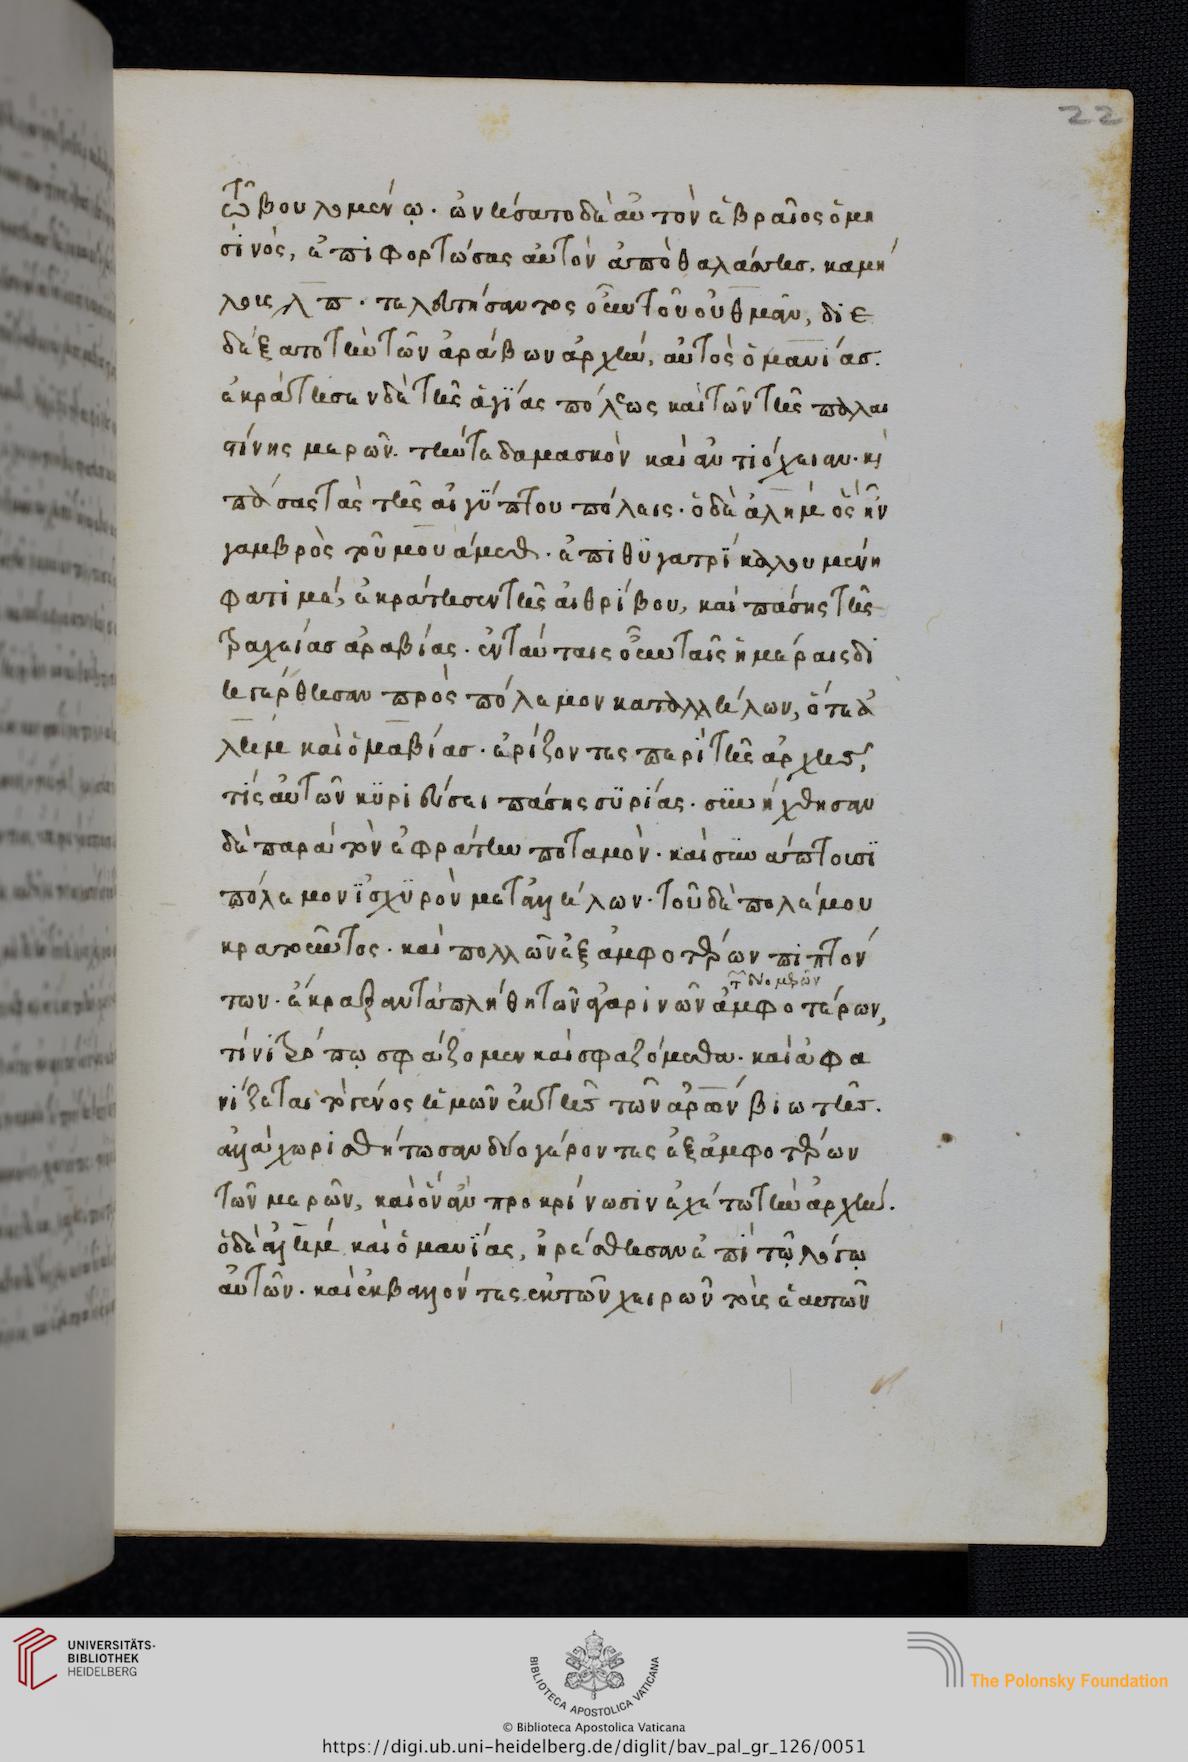 22
τῶ βουλομένῳ. ὠνήσατο δὲ αὐτὸν ἑβραῖος ὁ ἐμη
σινὸς, ἐπιφορτώσας αὐτὸν ἀπὸ θαλάσσης, καμή
λοις λπ. τελευτήσαντος οὖν τοῦ οὐθμὰν, διε
δέξατο τὴν τῶν ἀράβων ἀρχὴν, αὐτὸς ὁ μαυίας.
ἐκράτησεν δὲ τῆς ἁγίας πόλεως καὶ τῶν τῆς παλαι
στίνης μερῶν. τήν τε δαμασκὸν καὶ ἀντιόχειαν. κὶ
πάσας τὰς τῆς αἰγύπτου πόλεις. ὁ δὲ ἀλημὲ ὃς ἦν
γαμβρὸς τοῦ μουάμεθ. ἐπὶ θυγατρὶ καλλουμένη
φατιμὲ, ἐκράτησεν τῆς αἰθρίβου, καὶ πάσης τῆς
τραχείας ἀραβίας. ἐν ταύταις οὖν ταῖς ἡμέραις δι
ηγέρθησαν πρὸς πόλεμον κατ' ἀλλήλων, ὅ τε ἀ
λημὲ καὶ ὁ μαβίας. ἐρίζοντες περὶ τῆς ἀρχῆς,
τίς αὐτῶν κυριεύσει πάσης συρίας. συνήχθησαν
δὲ παρὰ τὸν ἐφράτην ποταμὸν. καὶ συνάπτουσι
πόλεμον ἰσχυρὸν μετ' ἀλλήλων. τοῦ δὲ πολέμου
κρατοῦντος. καὶ πολλῶν ἐξ ἀμφοτέρων πιπτόν
των. ἔκραξαν τὰ πλήθη τῶν ἀγαρινῶν ἀμφοτέρων,
τῶν μερῶν
τίνι τρόπῳ σφάζομεν καὶ σφαζόμεθα. καὶ ἀφα
νίζεται τὸ γένος ἡμῶν ἐκ τῆς τῶν ἀνῶν βιωτῆς.
ἀλλὰ χωρισθήτωσαν δύο γέροντες ἐξ ἀμφοτέρων
τῶν μερῶν, καὶ ὃν ἂν προκρίνωσιν ἐχέτω τὴν ἀρχήν.
ὁ δὲ ἀλημὲ καὶ ὁ μαυΐας, ἠρέσθησαν ἐπὶ τῷ λόγῳ
αὐτῶν. καὶ ἐκβαλλόντες ἐκ τῶν χειρῶν τοῖς ἑαυτῶν
UNIVERSITÄTS-
BIBLIOTHEK
HEIDELBERG
BIBLIOTECA APOSTOLICA VATICANA
The Polonsky Foundation
© Biblioteca Apostolica Vaticana
https://digi.ub.uni-heidelberg.de/diglit/bav_pal_gr_126/0051